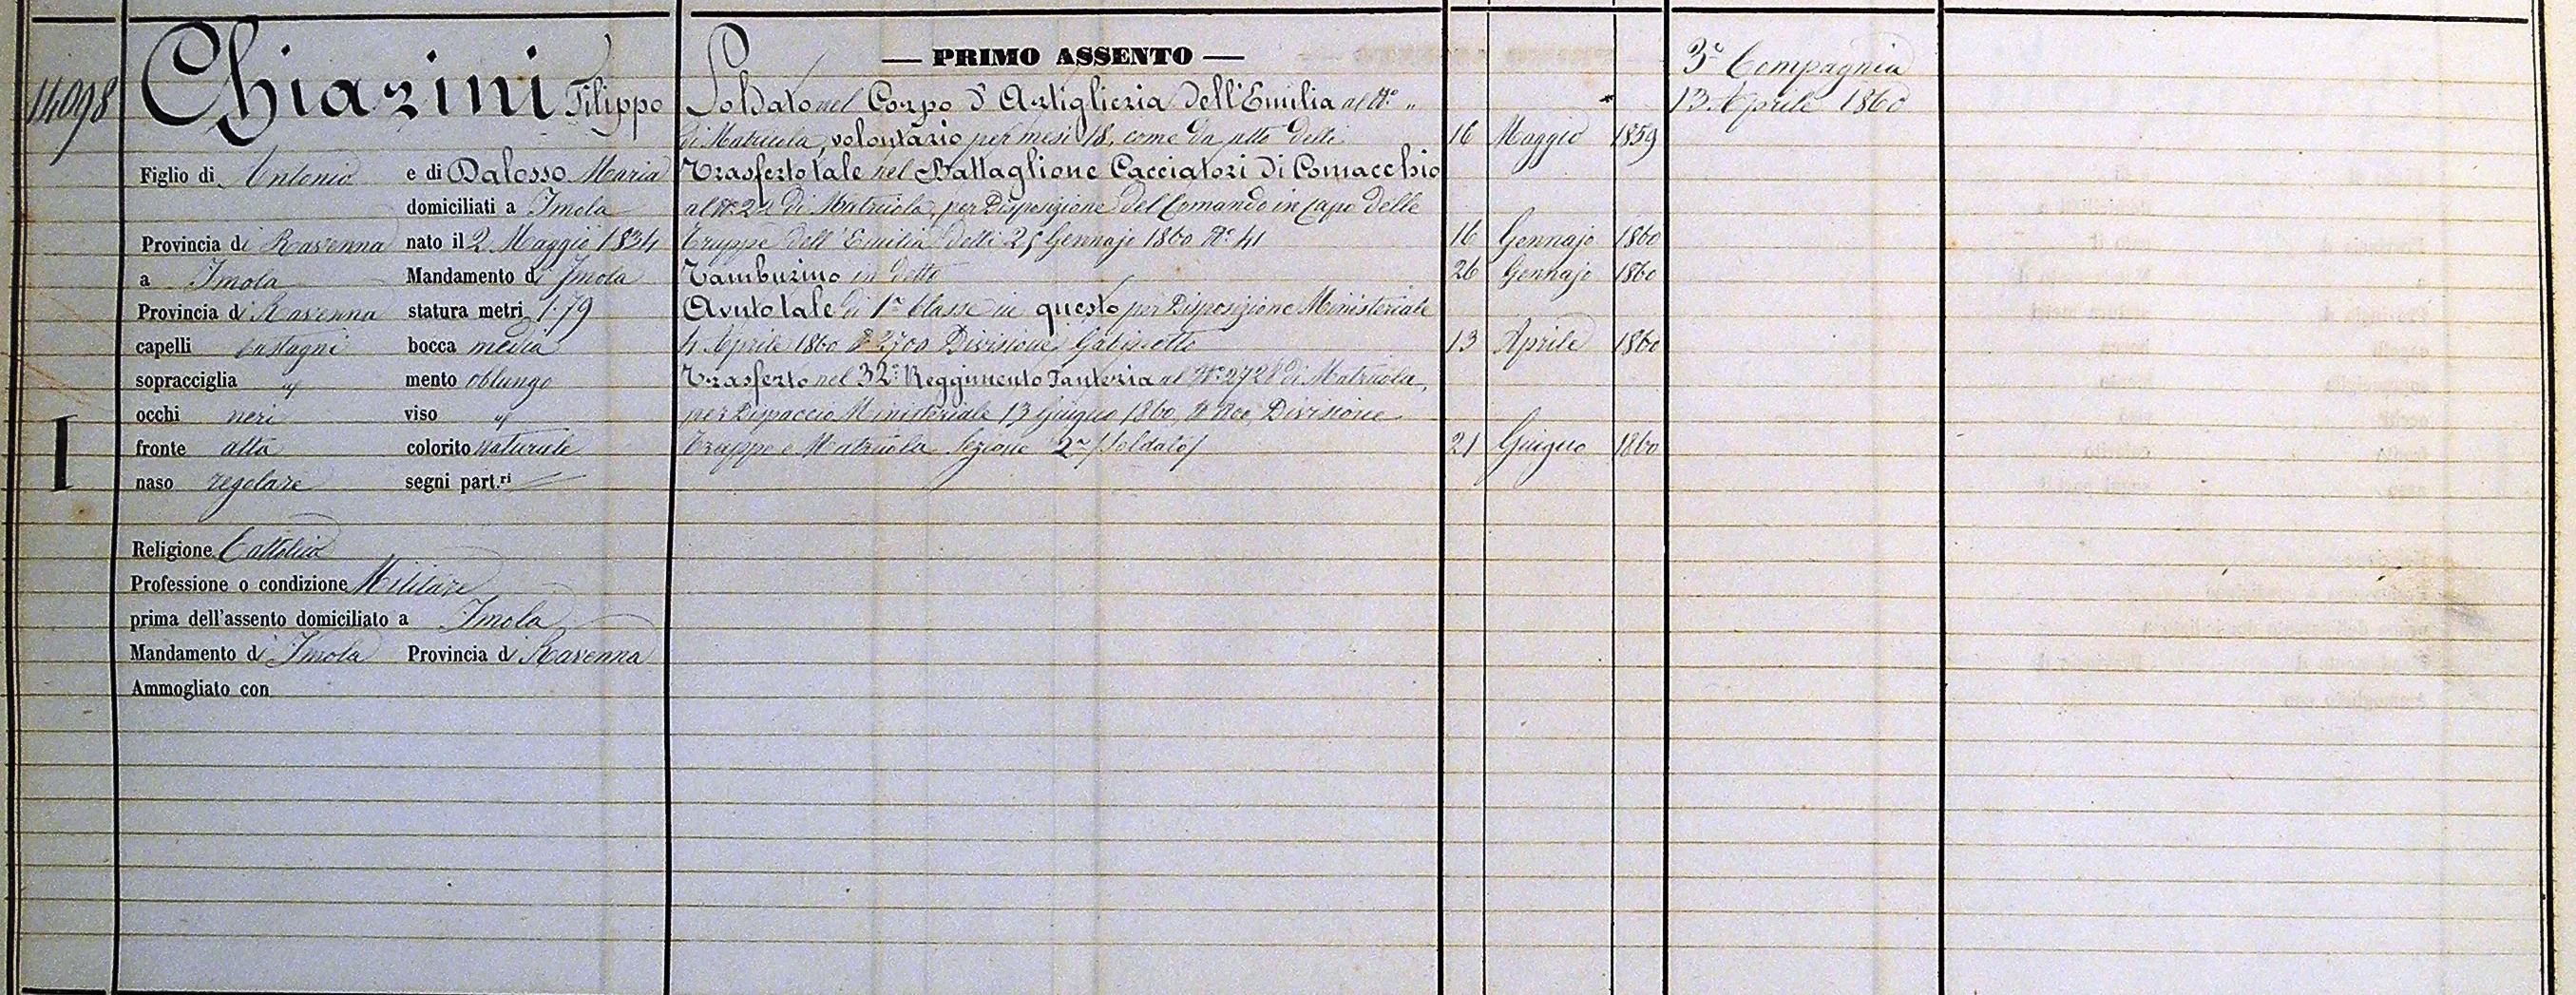 14098
Chiarini Filippo
Figlio di Antonio e di Dalosso Maria
domiciliati a Imola
Provincia di Ravenna nato il 2 Maggio 1834
a Imola Mandamento di Imola
Provincia di Ravenna statura metri 1.79
capelli castagni bocca media
sopracciglia id mento oblungo
occhi neri viso id
fronte alta colorito naturale
naso regolare segni part.ri
I
Religione Cattolica
Professione o condizione Militare
prima dell'assento domiciliato a Imola
Mandamento di Imola Provincia di Ravenna
Ammogliato con
— PRIMO ASSENTO —
Soldato nel Corpo d'Artiglieria dell'Emilia al N.° "
di Matricola, volontario per mesi 18, come da atto delli 16 Maggio 1859
Trasferto tale nel Battaglione Cacciatori di Comacchio
al N.° 22 di Matricola, per Disposizione del Comando in Capo delle
Truppe dell'Emilia delli 25 Gennajo 1860 N.° 41 16 Gennajo 1860
Tamburino in detto 26 Gennajo 1860
Avuto tale di 1a Classe in questo per Disposizione Ministeriale
4 Aprile 1860 N 2700 Divisione Gabinetto 13 Aprile 1860
Trasferto nel 32.° Reggimento Fanteria al N.° 2728 di Matricola,
per Dispaccio Ministeriale 13 Giugno 1860, Divisione
Truppe e Matricola Sezione 2a (Soldato) 21 Giugno 1860
3a Compagnia
13 Aprile 1860